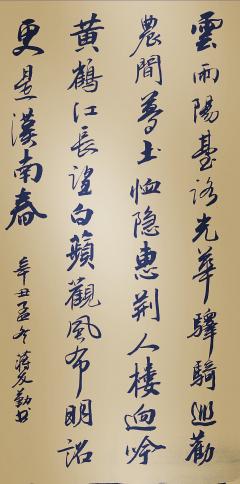 雲雨陽臺路光華驛騎巡勸
農間尊土恤隐惠荆人樓迥吟
黄鶴江長望白蘋觀風布明詔
更是漢南春
辛丑孟冬蔣友勤书